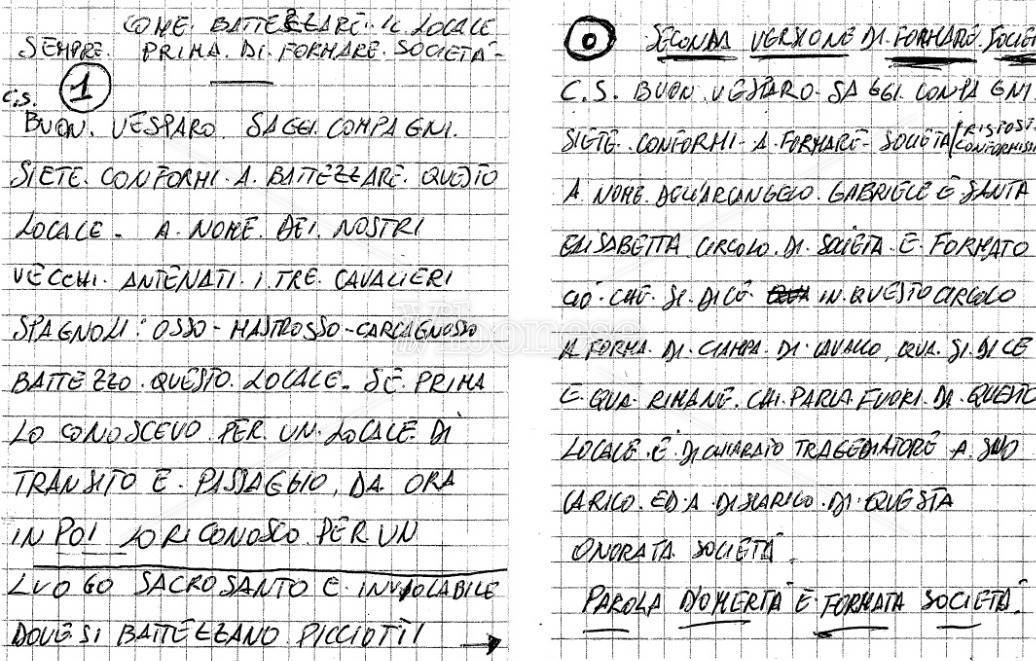 COME BATTEZZARE IL LOCALE
SEMPRE PRIMA DI FORMARE SOCIETÀ-
C.S. 1
BUON VESPARO SAGGI COMPAGNI.
SIETE CONFORMI A BATTEZZARE QUESTO
LOCALE - A NOME DEI NOSTRI
VECCHI ANTENATI I TRE CAVALIERI
SPAGNOLI: OSSO-MASTROSSO-CARCAGNOSSO
BATTEZZO QUESTO LOCALE - SE PRIMA
LO CONOSCEVO PER UN LOCALE DI
TRANSITO E PASSAGGIO, DA ORA
IN POI LO RICONOSCO PER UN
LUOGO SACROSANTO E INVIOLABILE
DOVE SI BATTEZZANO PICCIOTTI
0 SECONDA VERSIONE DI FORMARE SOCIET
C.S. BUON VESPARO SAGGI COMPAGNI
SIETE CONFORMI A FORMARE SOCIETÀ (RISPOST
CONFORMISSI
A NOME DELL'ARCANGELO GABRIELE E SANTA
ELISABETTA CIRCOLO DI SOCIETÀ E FORMATO
CIÒ CHE SI DICE IN QUESTO CIRCOLO
A FORMA DI CIAMPA DI CAVALLO, QUA SI DICE
E QUA RIMANE. CHI PARLA FUORI DA QUESTO
LOCALE È DICHIARATO TRAGEDIATORE A SUO
CARICO ED A DISCARICO DI QUESTA
ONORATA SOCIETÀ.
PAROLA D'OMERTÀ È FORMATA SOCIETÀ.